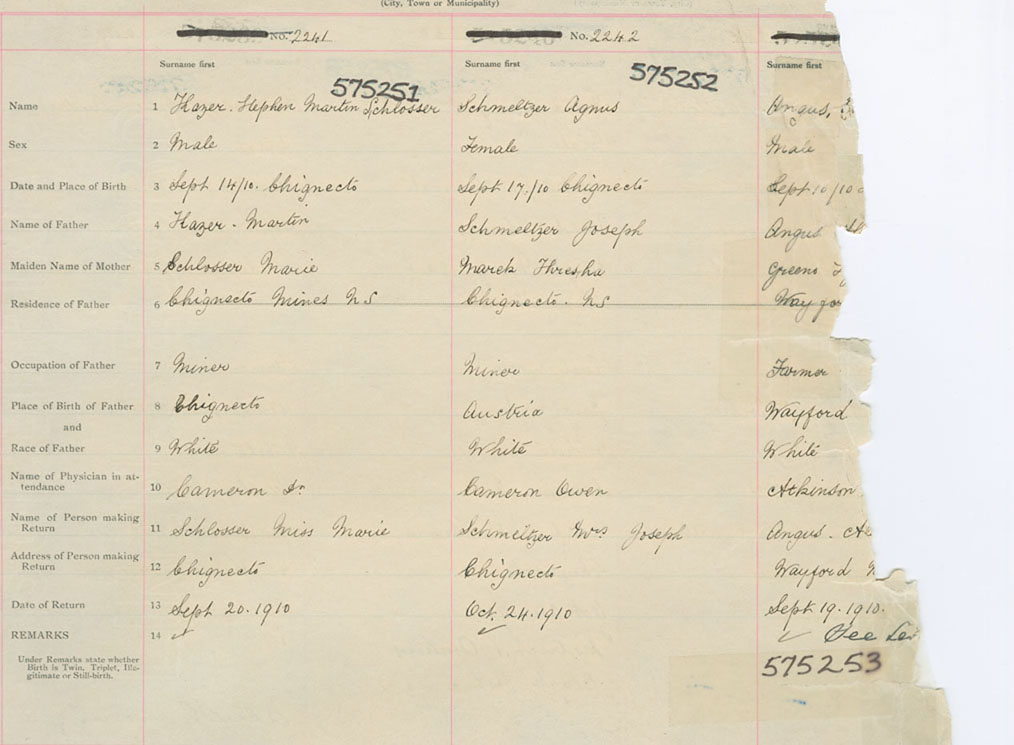 (City, Town or Municipality)
No. 2241 No. 2242
Surname first Surname first Surname first
575251 575252
Name 1 Hazer. Stephen Martin Schlosser Schmeltzer Agnus Angus,
Sex 2 Male Female Male
Date and Place of Birth 3 Sept 14/10. Chignecto Sept 17./10 Chignecto Sept 10/10
Name of Father 4 Hazer - Martin Schmeltzer Joseph Angus
Maiden Name of Mother 5 Schlosser Marie Marek Thresha Greeno
Residence of Father 6 Chignecto Mines NS Chignecto. NS Way
Occupation of Father 7 Miner Miner Farmer
Place of Birth of Father 8 Chignecto Austria Wayford
and
Race of Father 9 White White White
Name of Physician in at-
tendance 10 Cameron Dr Cameron Owen Atkinson
Name of Person making
Return 11 Schlosser Miss Marie Schmeltzer Mrs Joseph Angus -
Address of Person making
Return 12 Chignecto Chignecto Wayford N
Date of Return 13 Sept 20. 1910 Oct. 24. 1910 Sept 19. 1910.
REMARKS 14 See
Under Remarks state whether
Birth is Twin, Triplet, Ille-
gitimate or Still-birth.
575253